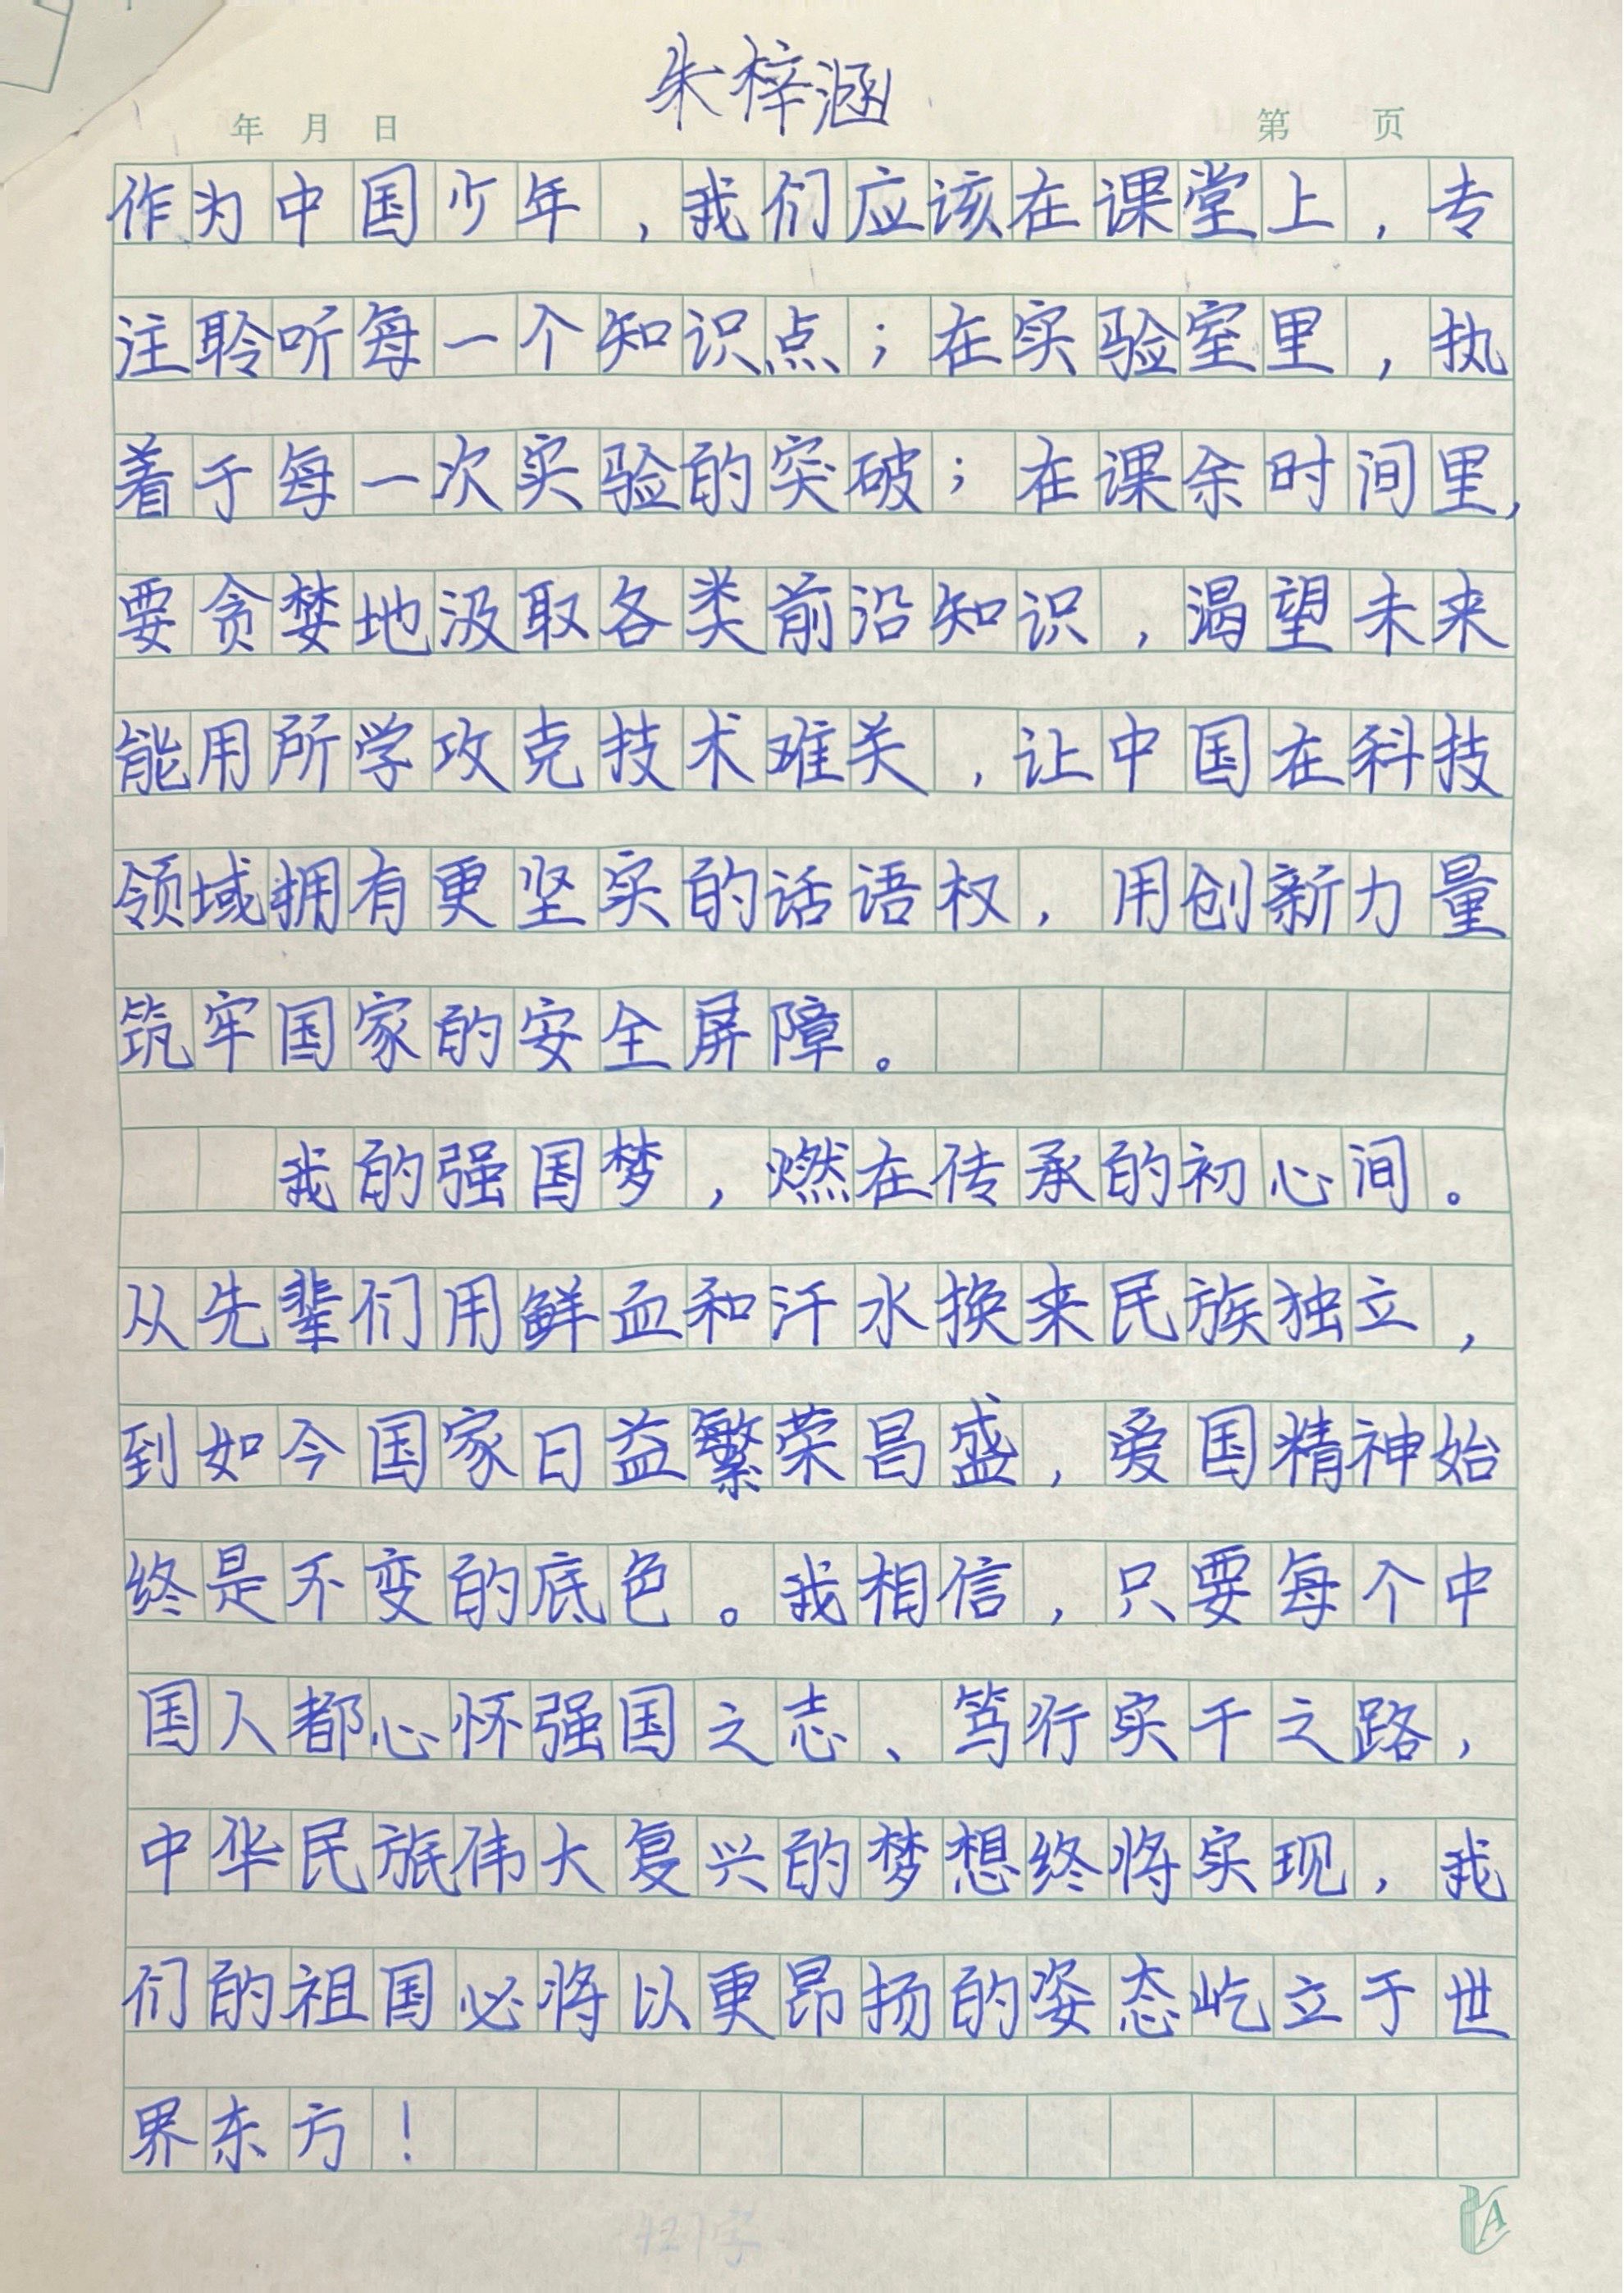 朱梓涵
年 月 日 第 页
作为中国少年，我们应该在课堂上，专
注聆听每一个知识点；在实验室里，执
着于每一次实验的突破；在课余时间里，
要贪婪地汲取各类前沿知识，渴望未来
能用所学攻克技术难关，让中国在科技
领域拥有更坚实的话语权，用创新力量
筑牢国家的安全屏障。
我的强国梦，燃在传承的初心间。
从先辈们用鲜血和汗水换来民族独立，
到如今国家日益繁荣昌盛，爱国精神始
终是不变的底色。我相信，只要每个中
国人都心怀强国之志、笃行实干之路，
中华民族伟大复兴的梦想终将实现，我
们的祖国必将以更昂扬的姿态屹立于世
界东方！